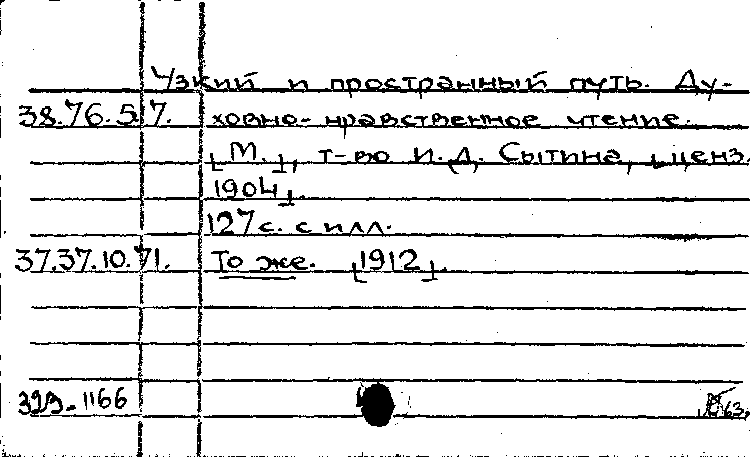 Узкий и пространный путь. Ду-
38.76.5.7. ховно-нравственное чтение.
[М.], т-во И.Д. Сытина, [ценз.
1904].
127 с. с илл.
37.37.10.71. То же. [1912].
329-1166
63,